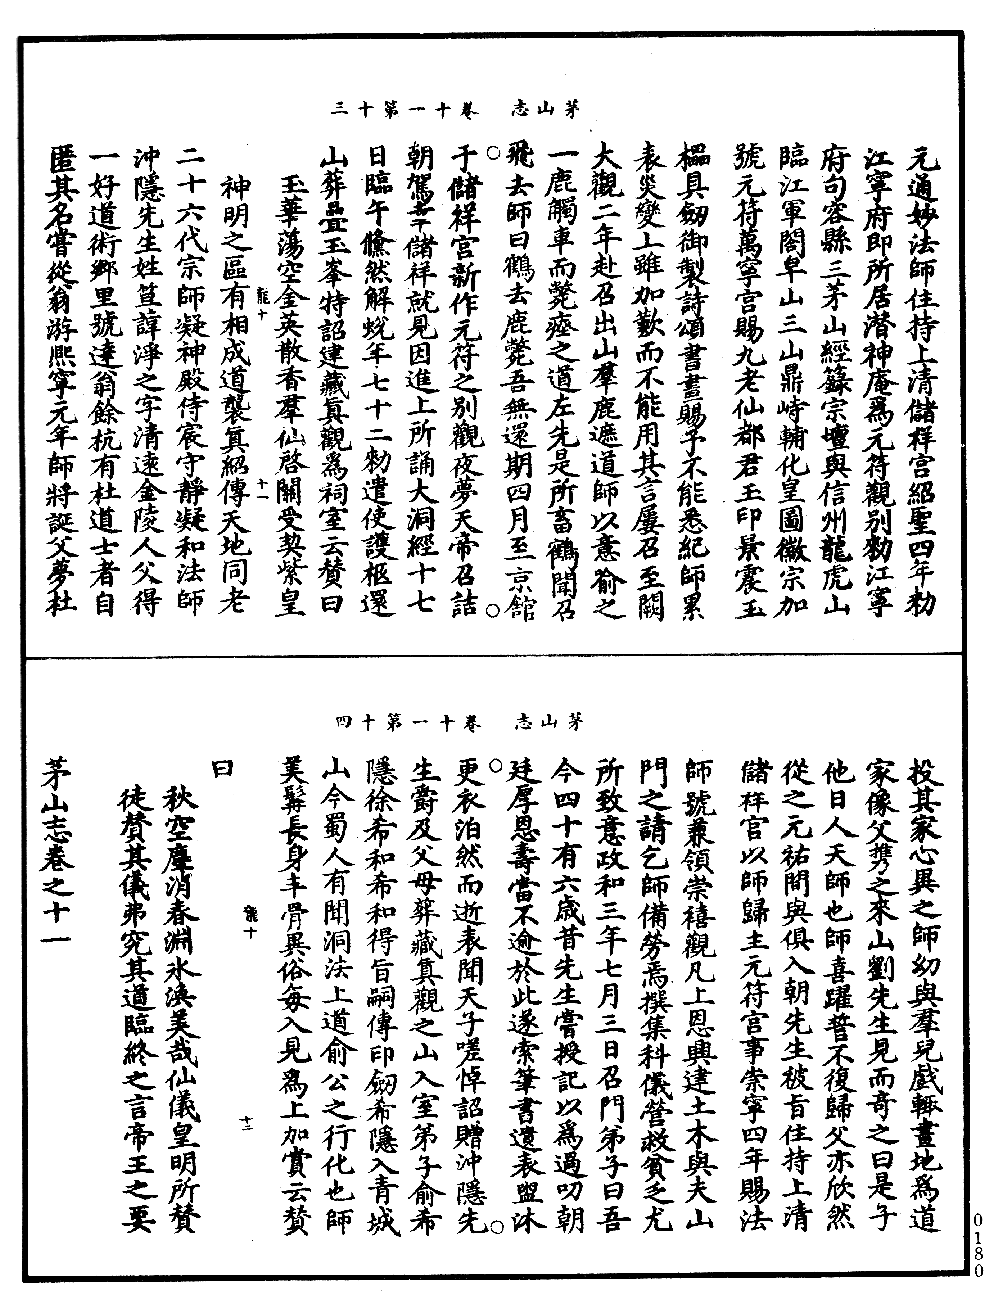 茅山志　卷十一第十三
元通妙法師住持上清儲祥宫紹聖四年勑
江寧府即所居潜神庵爲元符觀别勑江寧
府句容縣三茅山經籙宗壇與信州龍虎山
臨江軍閤皁山三山鼎峙輔化皇圖徽宗加
號元符萬寧宫賜九老仙都君玉印景震玉
櫑具劒御製詩頌書畫賜予不能悉紀師累
表災變上雖加歎而不能用其言屢召至闕
大觀二年赴召出山羣鹿遮道師以意諭之
一鹿觸車而斃瘞之道左先是所畜鶴聞召
飛去師曰鶴去鹿斃吾無還期四月至京館
于儲祥宫新作元符之别觀夜夢天帝召詰
朝駕幸儲祥就見因進上所誦大洞經十七
日臨午儵然解蛻年七十二勑遣使護柩還
山葬疊玉峯特詔建藏真觀爲祠室云贊曰
玉華蕩空金英散香羣仙啓關受契紫皇
神明之區有相成道襲真紹傳天地同老
龍十　十一
二十六代宗師凝神殿侍宸守靜凝和法師
沖隱先生姓笪諱淨之字清遠金陵人父得
一好道術鄉里號達翁餘杭有杜道士者自
匿其名嘗從翁游熙寧元年師將誕父夢杜
茅山志　卷十一第十四
投其家心異之師幼與羣兒戲輙畫地爲道
家像父携之來山劉先生見而奇之曰是子
他日人天師也師喜躍誓不復歸父亦欣然
從之元祐間與俱入朝先生被旨住持上清
儲祥宫以師歸主元符宫事崇寧四年賜法
師號兼領崇禧觀凡上恩興建土木與夫山
門之請乞師備勞焉撰集科儀營救貧乏尤
所致意政和三年七月三日召門弟子曰吾
今四十有六歳昔先生嘗授記以爲過叨朝
廷厚恩壽當不逾於此遂索筆書遺表盥沐
更衣泊然而逝表聞天子嗟悼詔贈沖隱先
生爵及父母葬藏真觀之山入室弟子俞希
隱徐希和希和得旨嗣傳印劒希隱入青城
山今蜀人有聞洞法上道俞公之行化也師
美髯長身丰骨異俗每入見爲上加賞云贊
龍十　十二
曰
秋空塵消春淵氷渙美哉仙儀皇明所贊
徒贊其儀弗究其道臨終之言帝王之要
茅山志卷之十一
0180